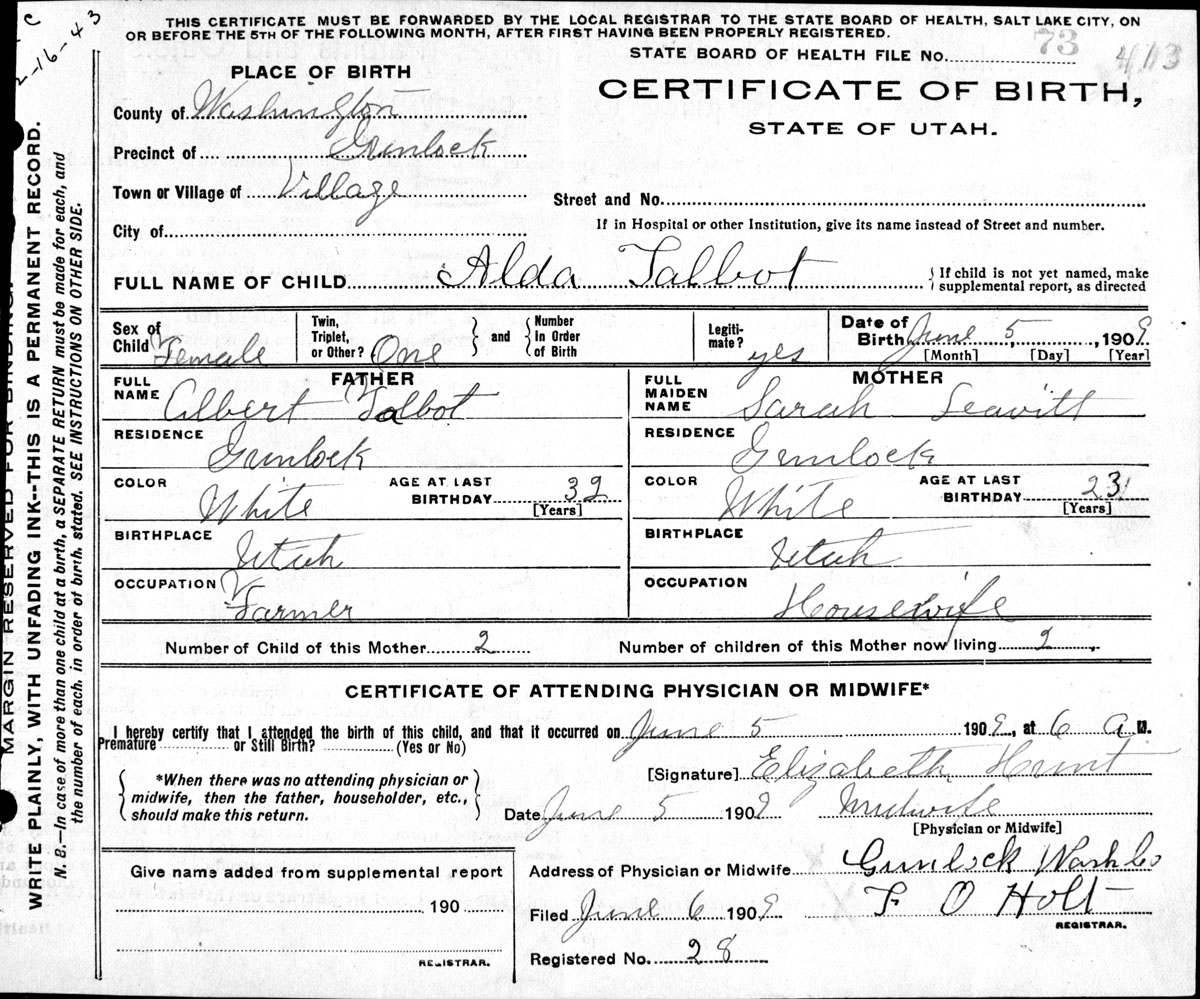 THIS CERTIFICATE MUST BE FORWARDED BY THE LOCAL REGISTRAR TO THE STATE BOARD OF HEALTH, SALT LAKE CITY, ON
OR BEFORE THE 5TH OF THE FOLLOWING MONTH, AFTER FIRST HAVING BEEN PROPERLY REGISTERED.
STATE BOARD OF HEALTH FILE No. 73 413
2-16-43
PLACE OF BIRTH
CERTIFICATE OF BIRTH,
STATE OF UTAH.
County of Washington
Precinct of Gunlock
Town or Village of Village
Street and No.
City of
If in Hospital or other Institution, give its name instead of Street and number.
FULL NAME OF CHILD Alda Talbot
If child is not yet named, make
supplemental report, as directed
Sex of Child Female
Twin, Triplet, or Other? One
and Number In Order of Birth
Legiti-mate? yes
Date of Birth June 5, 1909
[Month] [Day] [Year]
FATHER
FULL NAME Albert Talbot
RESIDENCE Gunlock
COLOR White
AGE AT LAST BIRTHDAY 32
[Years]
BIRTHPLACE Utah
OCCUPATION Farmer
MOTHER
FULL MAIDEN NAME Sarah Leavitt
RESIDENCE Gunlock
COLOR White
AGE AT LAST BIRTHDAY 23
[Years]
BIRTHPLACE Utah
OCCUPATION Housewife
Number of Child of this Mother 2
Number of children of this Mother now living 2
CERTIFICATE OF ATTENDING PHYSICIAN OR MIDWIFE*
I hereby certify that I attended the birth of this child, and that it occurred on June 5 1909, at 6 a M.
Premature or Still Birth? (Yes or No)
[Signature] Elizabeth Hunt
*When there was no attending physician or
midwife, then the father, householder, etc.,
should make this return.
Date June 5 1909 Midwife
[Physician or Midwife]
Give name added from supplemental report
190
REGISTRAR.
Address of Physician or Midwife Gunlock Wash Co
Filed June 6 1909 F O Holt
REGISTRAR.
Registered No. 28
MARGIN RESERVED FOR BINDING.
WRITE PLAINLY, WITH UNFADING INK--THIS IS A PERMANENT RECORD.
N. B.—In case of more than one child at a birth, a SEPARATE RETURN must be made for each, and
the number of each, in order of birth, stated. SEE INSTRUCTIONS ON OTHER SIDE.